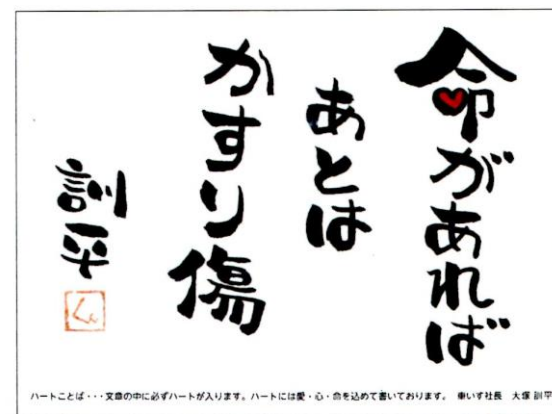 命があれば
あとは
かすり傷
訓平
くん
ハートことば・・・文章の中に必ずハートが入ります。ハートには愛・心・命を込めて書いております。 車いす社長 大塚 訓平